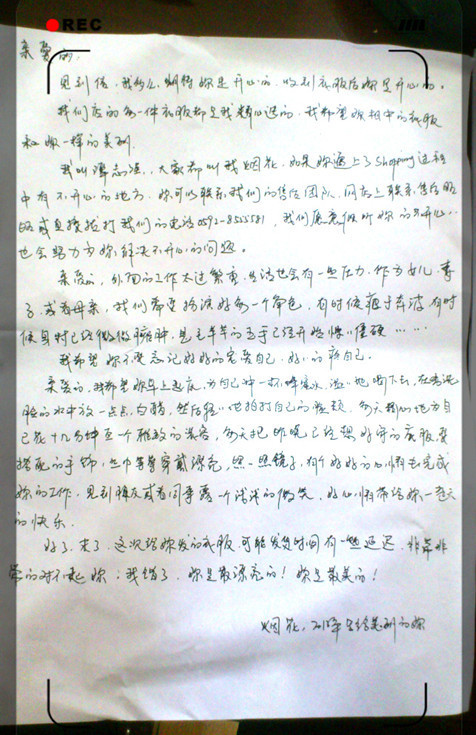 REC
亲爱的,
见到信,我多么期待妳是开心的,收到衣服后妳是开心的。
我们店的每一件衣服都是我精心选的,我希望妳相中的衣服
和妳一样的美丽.
我叫 大家都叫我烟花,如果妳遇上了Shopping过程
中有不开心的地方,妳可以联系我们的售后团队,网上联系售后
或直接拨打我们的电话0592-8555581,我们愿意倾听妳的不开心,
也会努力为妳解决不开心的问题。
亲爱的,外面的工作太过繁重,生活也会有一些压力,作为女儿,妻
子,或者母亲,我们都要扮演好每一个角色,有时候疲于奔波,有时
候 开始 僵硬……
我希望妳不要忘记好好的宠爱自己,好好的疼自己.
亲爱的,我希望妳早上起床,为自己冲一杯蜂蜜水,温温地喝下去,在洗
脸的水中放一点点白醋,然后轻轻地拍打自己的脸颊,每天 地为自
己花十几分钟画一个雅致的淡妆,每天把昨晚已经想好的衣服,要
搭配的手饰,丝巾等等穿戴漂亮,照一照镜子,有个好好的心情去完成
妳的工作,见到朋友或者同事露一个浅浅的微笑,好心情带给妳一整天
的快乐.
好了,亲,这次给妳发的衣服,可能发货时间有一些延迟,非常非
常的对不起妳:我错了,妳是最漂亮的!妳是最美的!
烟花,2012年 美丽的妳